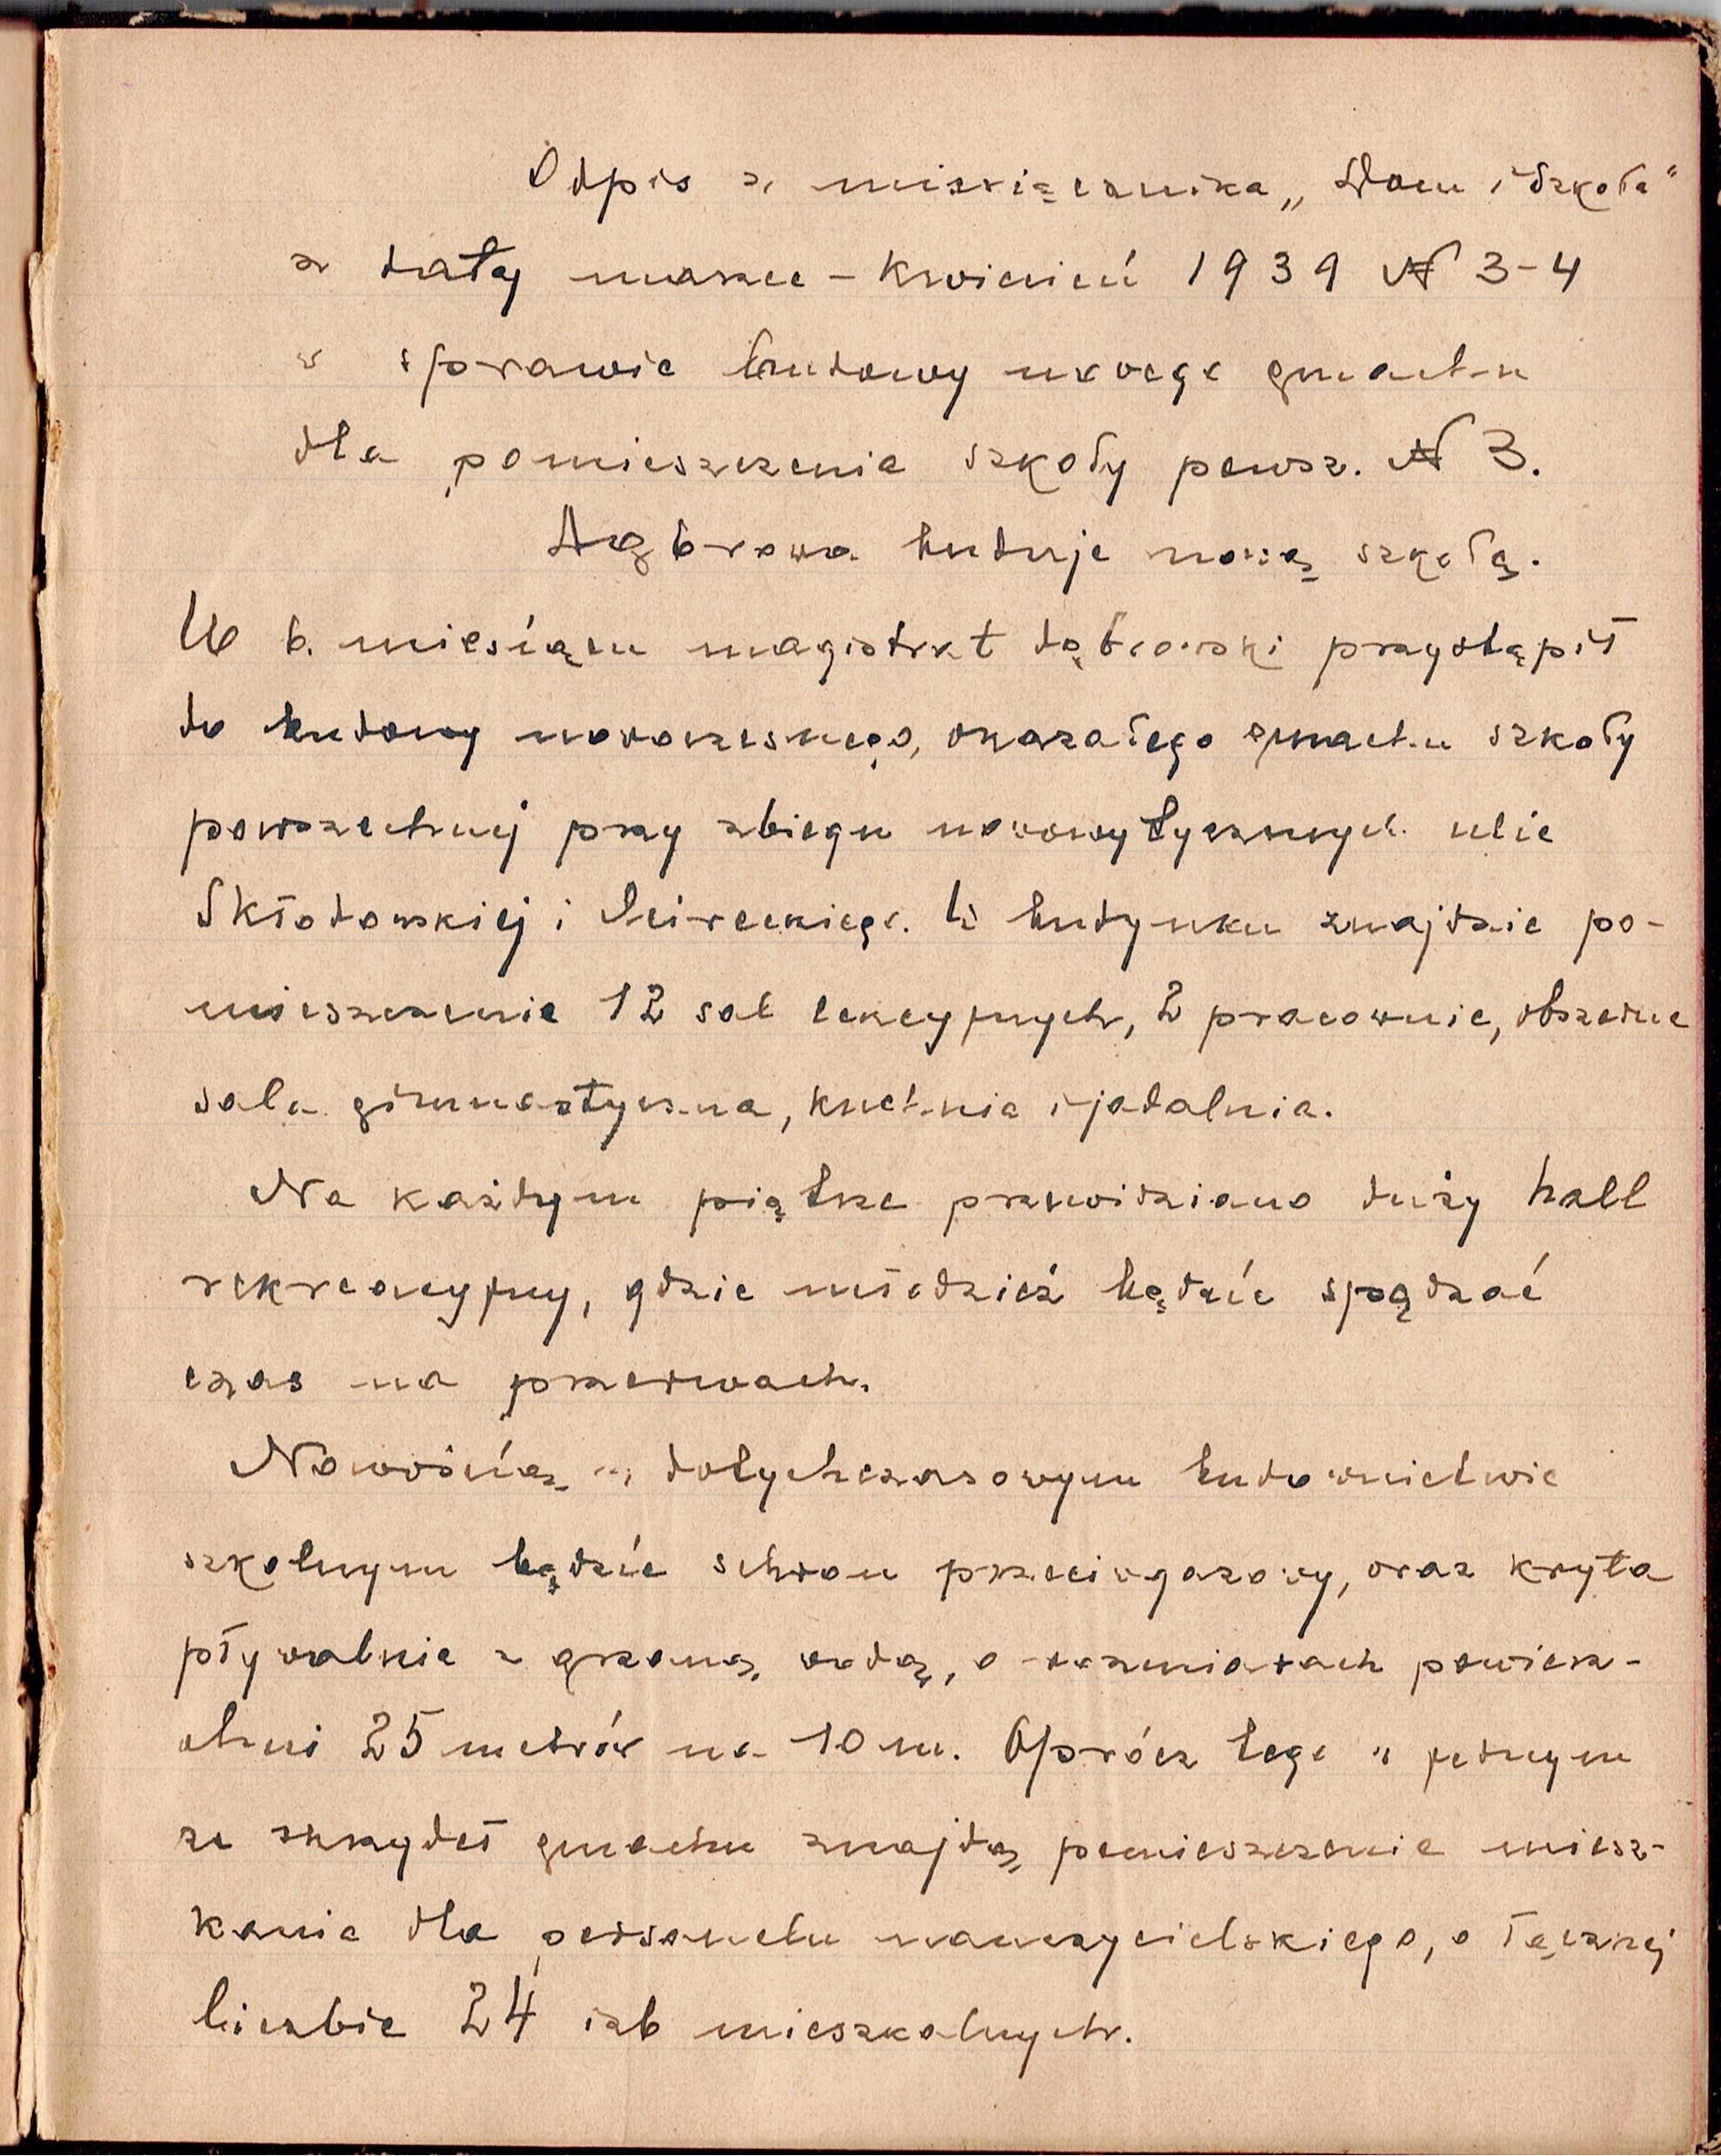 Odpis z miesięcznika „Dom i Szkoła"
z daty marzec – kwiecień 1939 № 3-4
w sprawie budowy nowego gmachu
dla pomieszczenia szkoły powsz. № 3.
Dąbrowa buduje nową szkołę.
W b. miesiącu magistrat dąbrowski przystąpił
do budowy nowoczesnego, okazałego gmachu szkoły
powszechnej przy zbiegu nowowytycznych ulic
Skłodowskiej i Cieireckiego. W budynku znajdzie po-
mieszczenie 12 sal lekcyjnych, 2 pracownie, obszerne
sala gimnastyczna, kuchnia i jadalnia.
Na każdym piętrze przewidziano duży hall
rekreacyjny, gdzie młodzież będzie spędzać
czas na przerwach.
Nowością w dotychczasowym budownictwie
szkolnym będzie schron przeciwgazowy, oraz kryta
pływalnia z grzaną wodą, o rozmiarach powierz-
chni 25 metrów na 10 m. Oprócz tego w jednym
ze skrzydeł gmachu znajdą pomieszczenie miesz-
kania dla personelu nauczycielskiego, o łącznej
liczbie 24 izb mieszkalnych.